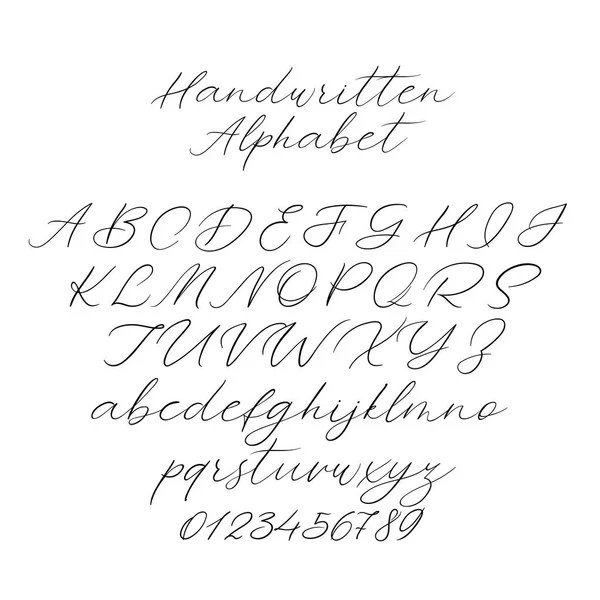 Handwritten
Alphabet
A B C D E F G H I J
K L M N O P Q R S
T U V W X Y Z
abcdefghijklmno
pqrstuvwxyz
0123456789